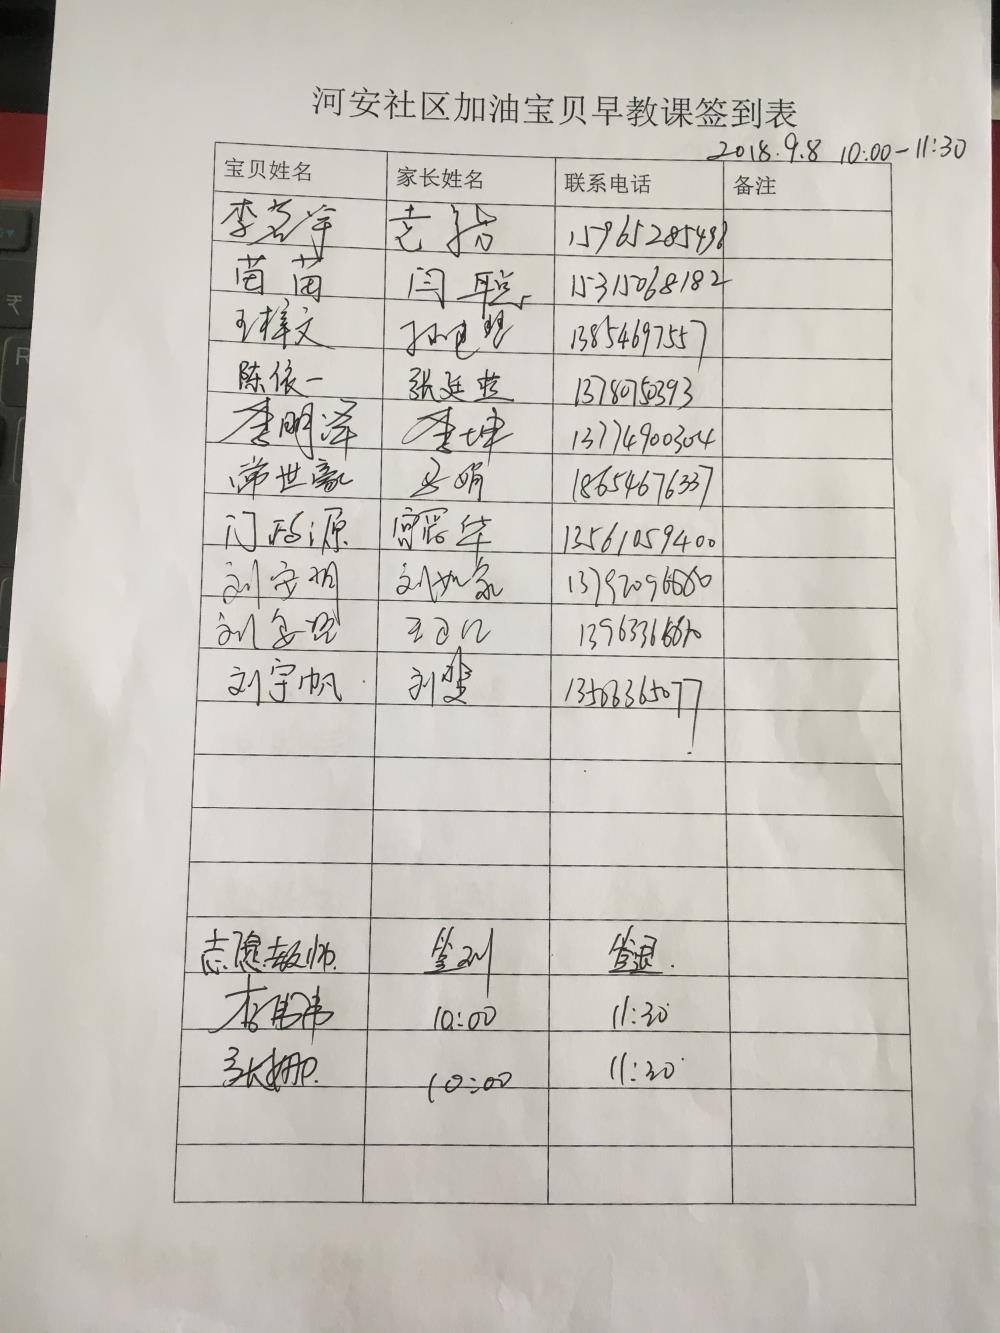 河安社区加油宝贝早教课签到表
2018.9.8 10:00-11:30
宝贝姓名 家长姓名 联系电话 备注
李茗宇 15965285498
茵茵 闫聪 15315068182
王梓文 13854697557
陈依一 张廷芸 13780750393
李明泽 李坤 13774900304
常世豪 安娟 18654676337
门政源 华 13561059400
刘安玥 刘如家 13792096660
刘 13963366610
刘宇帆 刘斐 13506365077
志愿教师 签到 签退
李伟 10:00 11:30
张娜 10:00 11:30